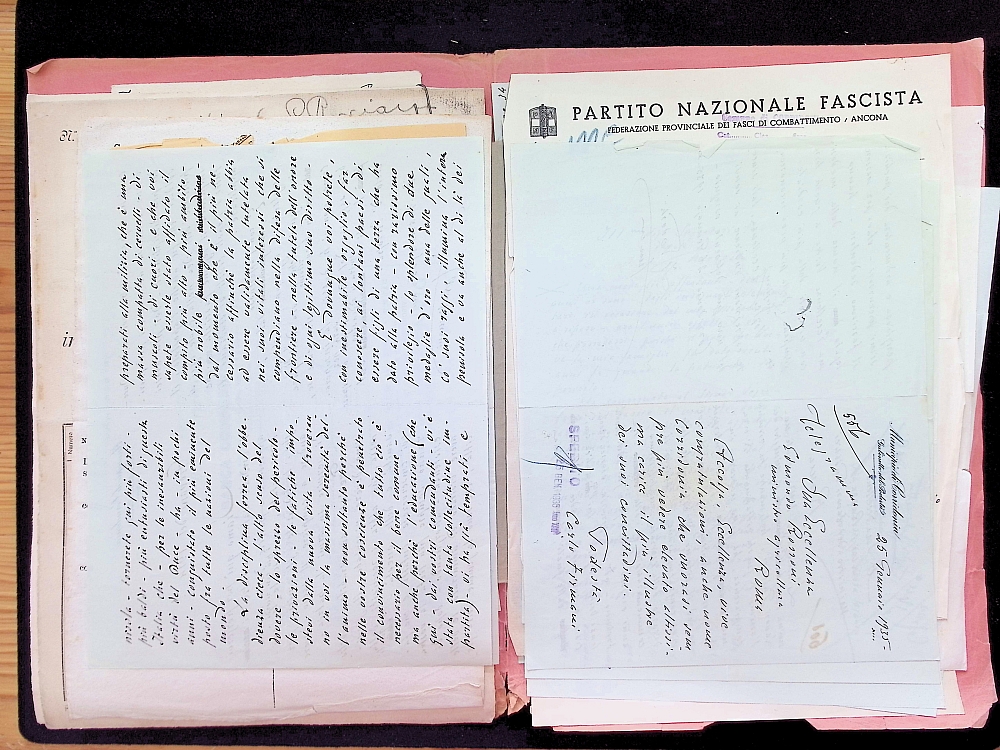 PARTITO NAZIONALE FASCISTA
FEDERAZIONE PROVINCIALE DEI FASCI DI COMBATTIMENTO , ANCONA
tornerete qui più forti -
più baldi - più entusiasti di questa
Italia che - per le inesauribili
virtù del Duce - ha in pochi
anni conquistato il più eminente
posto fra tutte le nazioni del
mondo.
La disciplina ferrea - l'obbe-
dienza cieca - l'alto senso del
dovere - lo sprezzo del pericolo -
le privazioni - le fatiche impo-
ste dalla nuova vita - troveran
no in voi la massima serenità del-
l'animo - non soltanto perchè
nelle vostre coscienze è penetrato
il convincimento che tutto ciò è
necessario per il bene comune -
ma anche perchè l'educazione (che
qui - dai vostri comandanti - vi è
stata con tanta sollecitudine im-
partita) - vi ha già temprati e
preparati alla milizia, che è una
massa compatta di cervelli - di
muscoli - di cuori - e che voi
sapete esserle stato affidato il
compito più alto - più ambito -
più nobile
dal momento che è il più ne-
cessario affinchè la patria abbia
ad essere validamente tutelata
nei suoi vitali interessi che si
compendiano nella difesa delle
frontiere - nella tutela dell'onore
e di ogni legittimo suo diritto.
E dovunque voi potrete,
con inestimabile orgoglio, far
conoscere ai lontani paesi di
essere figli di una terra che ha
dato alla patria - con rarissimo
privilegio - lo splendore di due
medaglie d'oro - una delle quali,
co' suoi raggi, illumina l'intera
penisola e va anche al di là dei
25 Gennaio 1935 -
556
Sua Eccellenza
Edmondo Rossoni
ministro agricoltura
Roma
Accolga, Eccellenza, vive
congratulazioni, anche nome
Corridonia che onorasi sem
pre più vedere elevato altissi-
ma carica il più illustre
dei suoi concittadini.
Podestà
Carlo Firmani